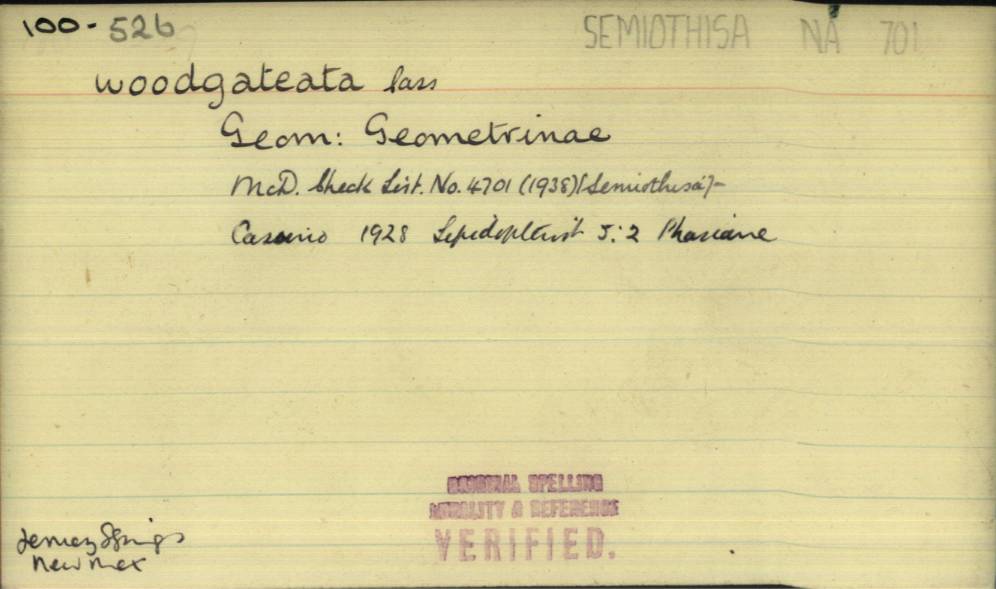 100-526 SEMIOTHISA NA 701
woodgateata Cass
Geom: Geometrinae
McD. Check List. No. 4701 (1938) [Semiothisa]-
Cassino 1928 Lepidopterist 5:2 Phasiane
ORIGINAL SPELLING
LOCALITY & REFERENCE
VERIFIED.
Jemez Springs
New Mex